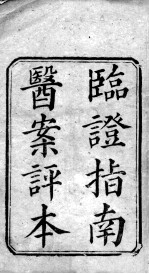 臨證指南
醫案評本